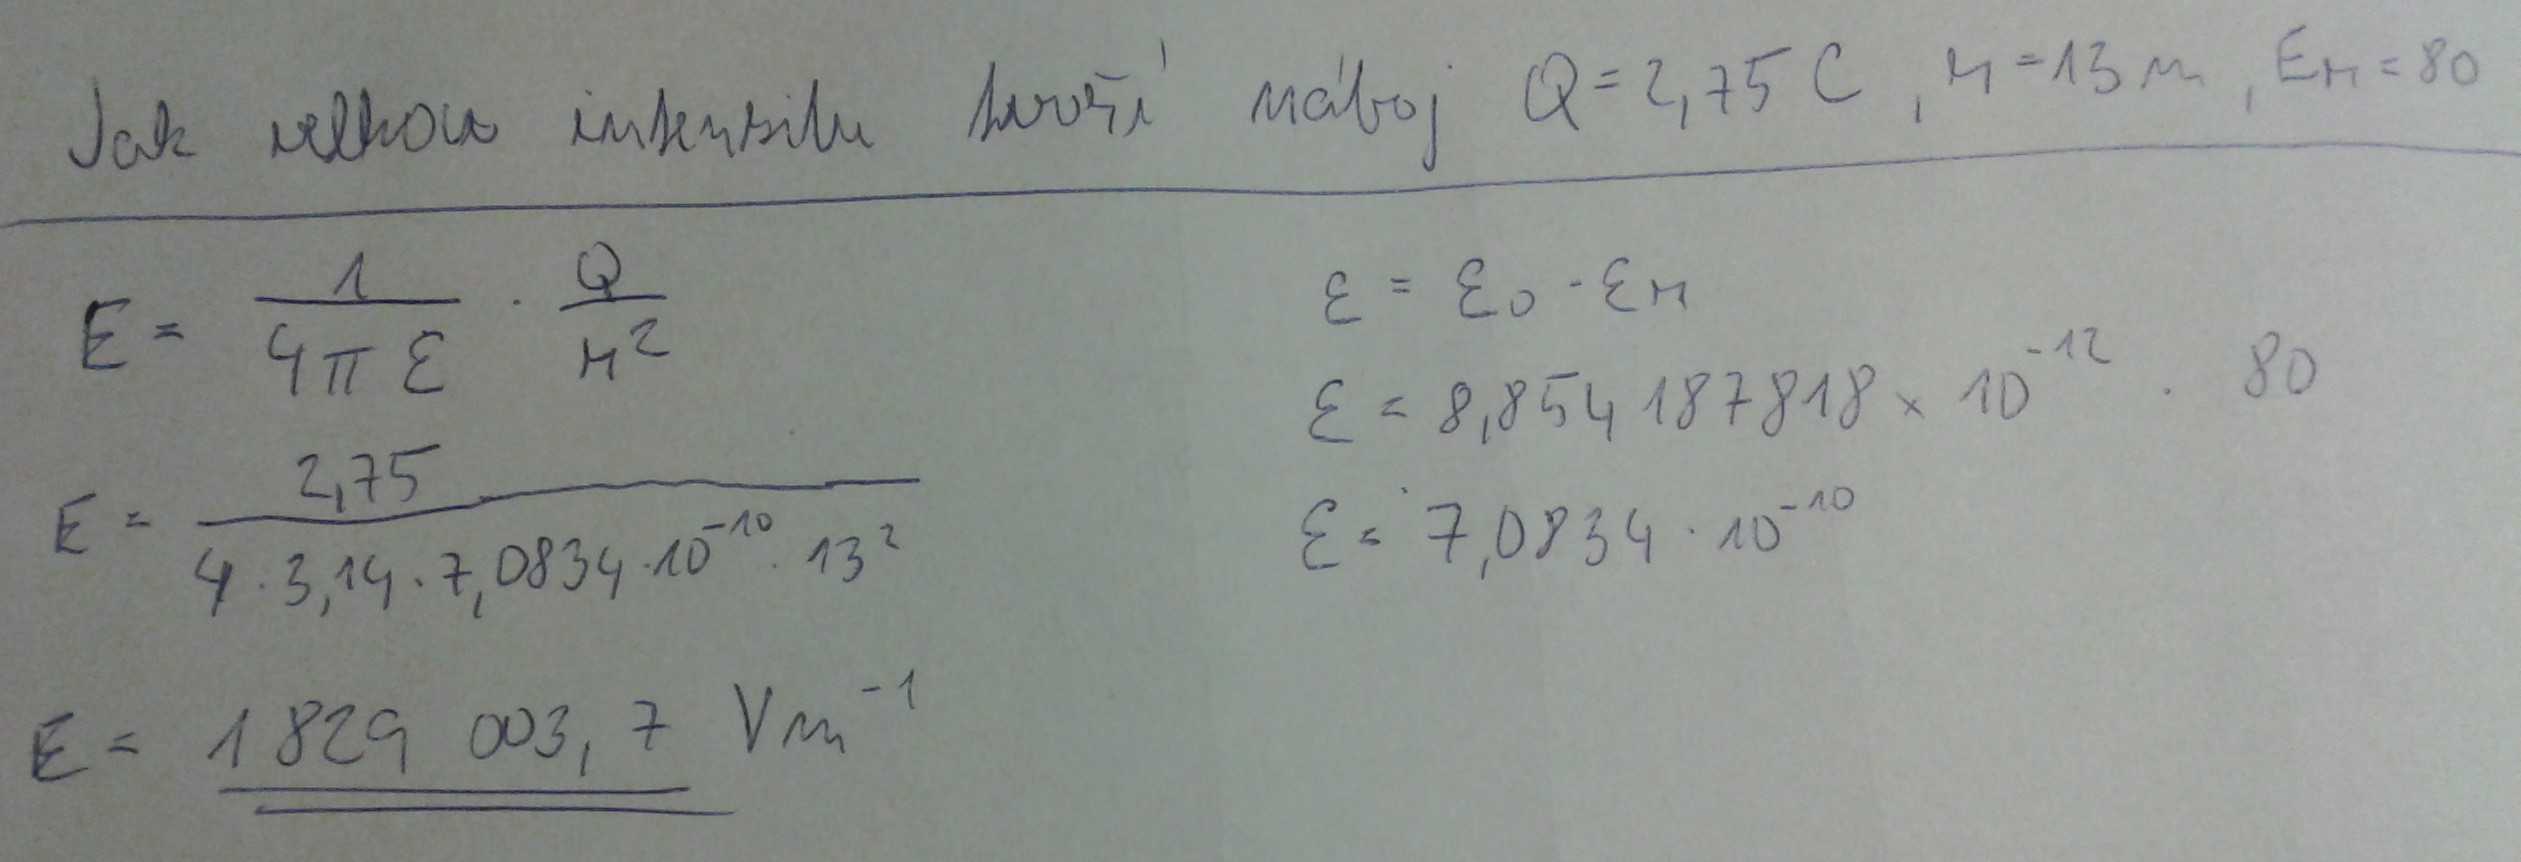 Jak velkou intenzitu tvoří náboj Q = 2,75 C, r = 13 m, εr = 80
E = 1/(4πε) · Q/r²
E = 2,75/(4 · 3,14 · 7,0834 · 10⁻¹⁰ · 13²)
E = 1829 003,7 Vm⁻¹
ε = ε₀ · εr
ε = 8,854 187818 × 10⁻¹² · 80
ε = 7,0834 · 10⁻¹⁰